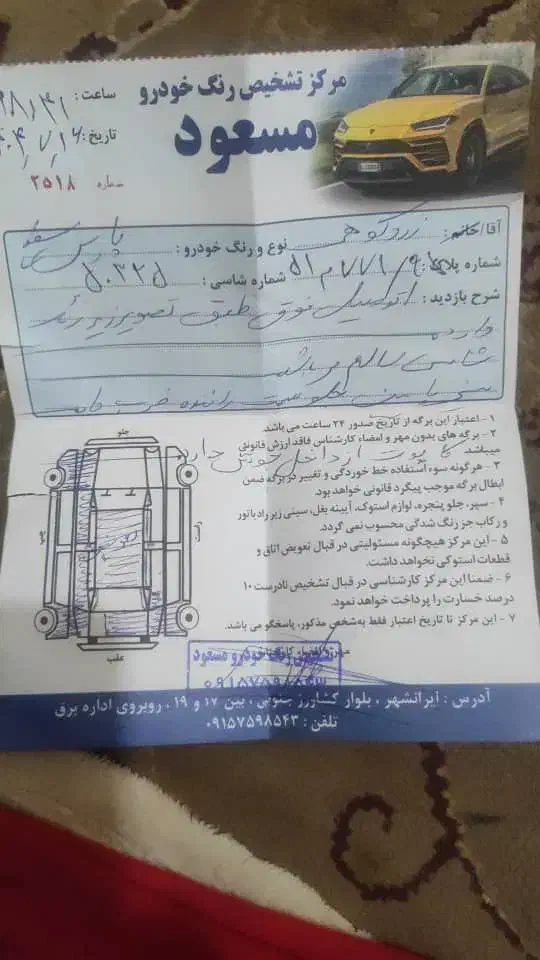 مرکز تشخیص رنگ خودرو
مسعود
ساعت :
تاریخ :
شماره ۲۵۱۸
آقا/خانم: زردکوهی
نوع و رنگ خودرو : پارس سفید
شماره پلاک:
شماره شاسی : ۵۰۳۲۵
شرح بازدید : اتومبیل فوق طبق تصویر زیر رنگ
دارد
شاسی سالم می باشد
کاپوت از داخل جوش دارد
۱ - اعتبار این برگه از تاریخ صدور ۲۴ ساعت می باشد.
۲ - برگه های بدون مهر و امضاء کارشناس فاقد ارزش قانونی
میباشد
۳ - هرگونه سوء استفاده خط خوردگی و تغییر در برگه ضمن
ابطال برگه موجب پیگرد قانونی خواهد بود.
۴ - سپر، جلو پنجره، لوازم استوک، آیینه بغل، سینی زیر رادیاتور
و رکاب جز رنگ شدگی محسوب نمی گردد.
۵ - این مرکز هیچگونه مسئولیتی در قبال تعویض اتاق و
قطعات استوکی نخواهد داشت.
۶ - ضمنا این مرکز کارشناسی در قبال تشخیص نادرست ۱۰
درصد خسارت را پرداخت خواهد نمود.
۷ - این مرکز تا تاریخ اعتبار فقط به شخص مذکور، پاسخگو می باشد.
جلو
راست
چپ
عقب
تشخیص رنگ خودرو مسعود
۰۹۱۵۷۵۹۸۵۴۳
آدرس : ایرانشهر ، بلوار کشاورز جنوبی ، بین ۱۷ و ۱۹ ، روبروی اداره برق
تلفن : ۰۹۱۵۷۵۹۸۵۴۳